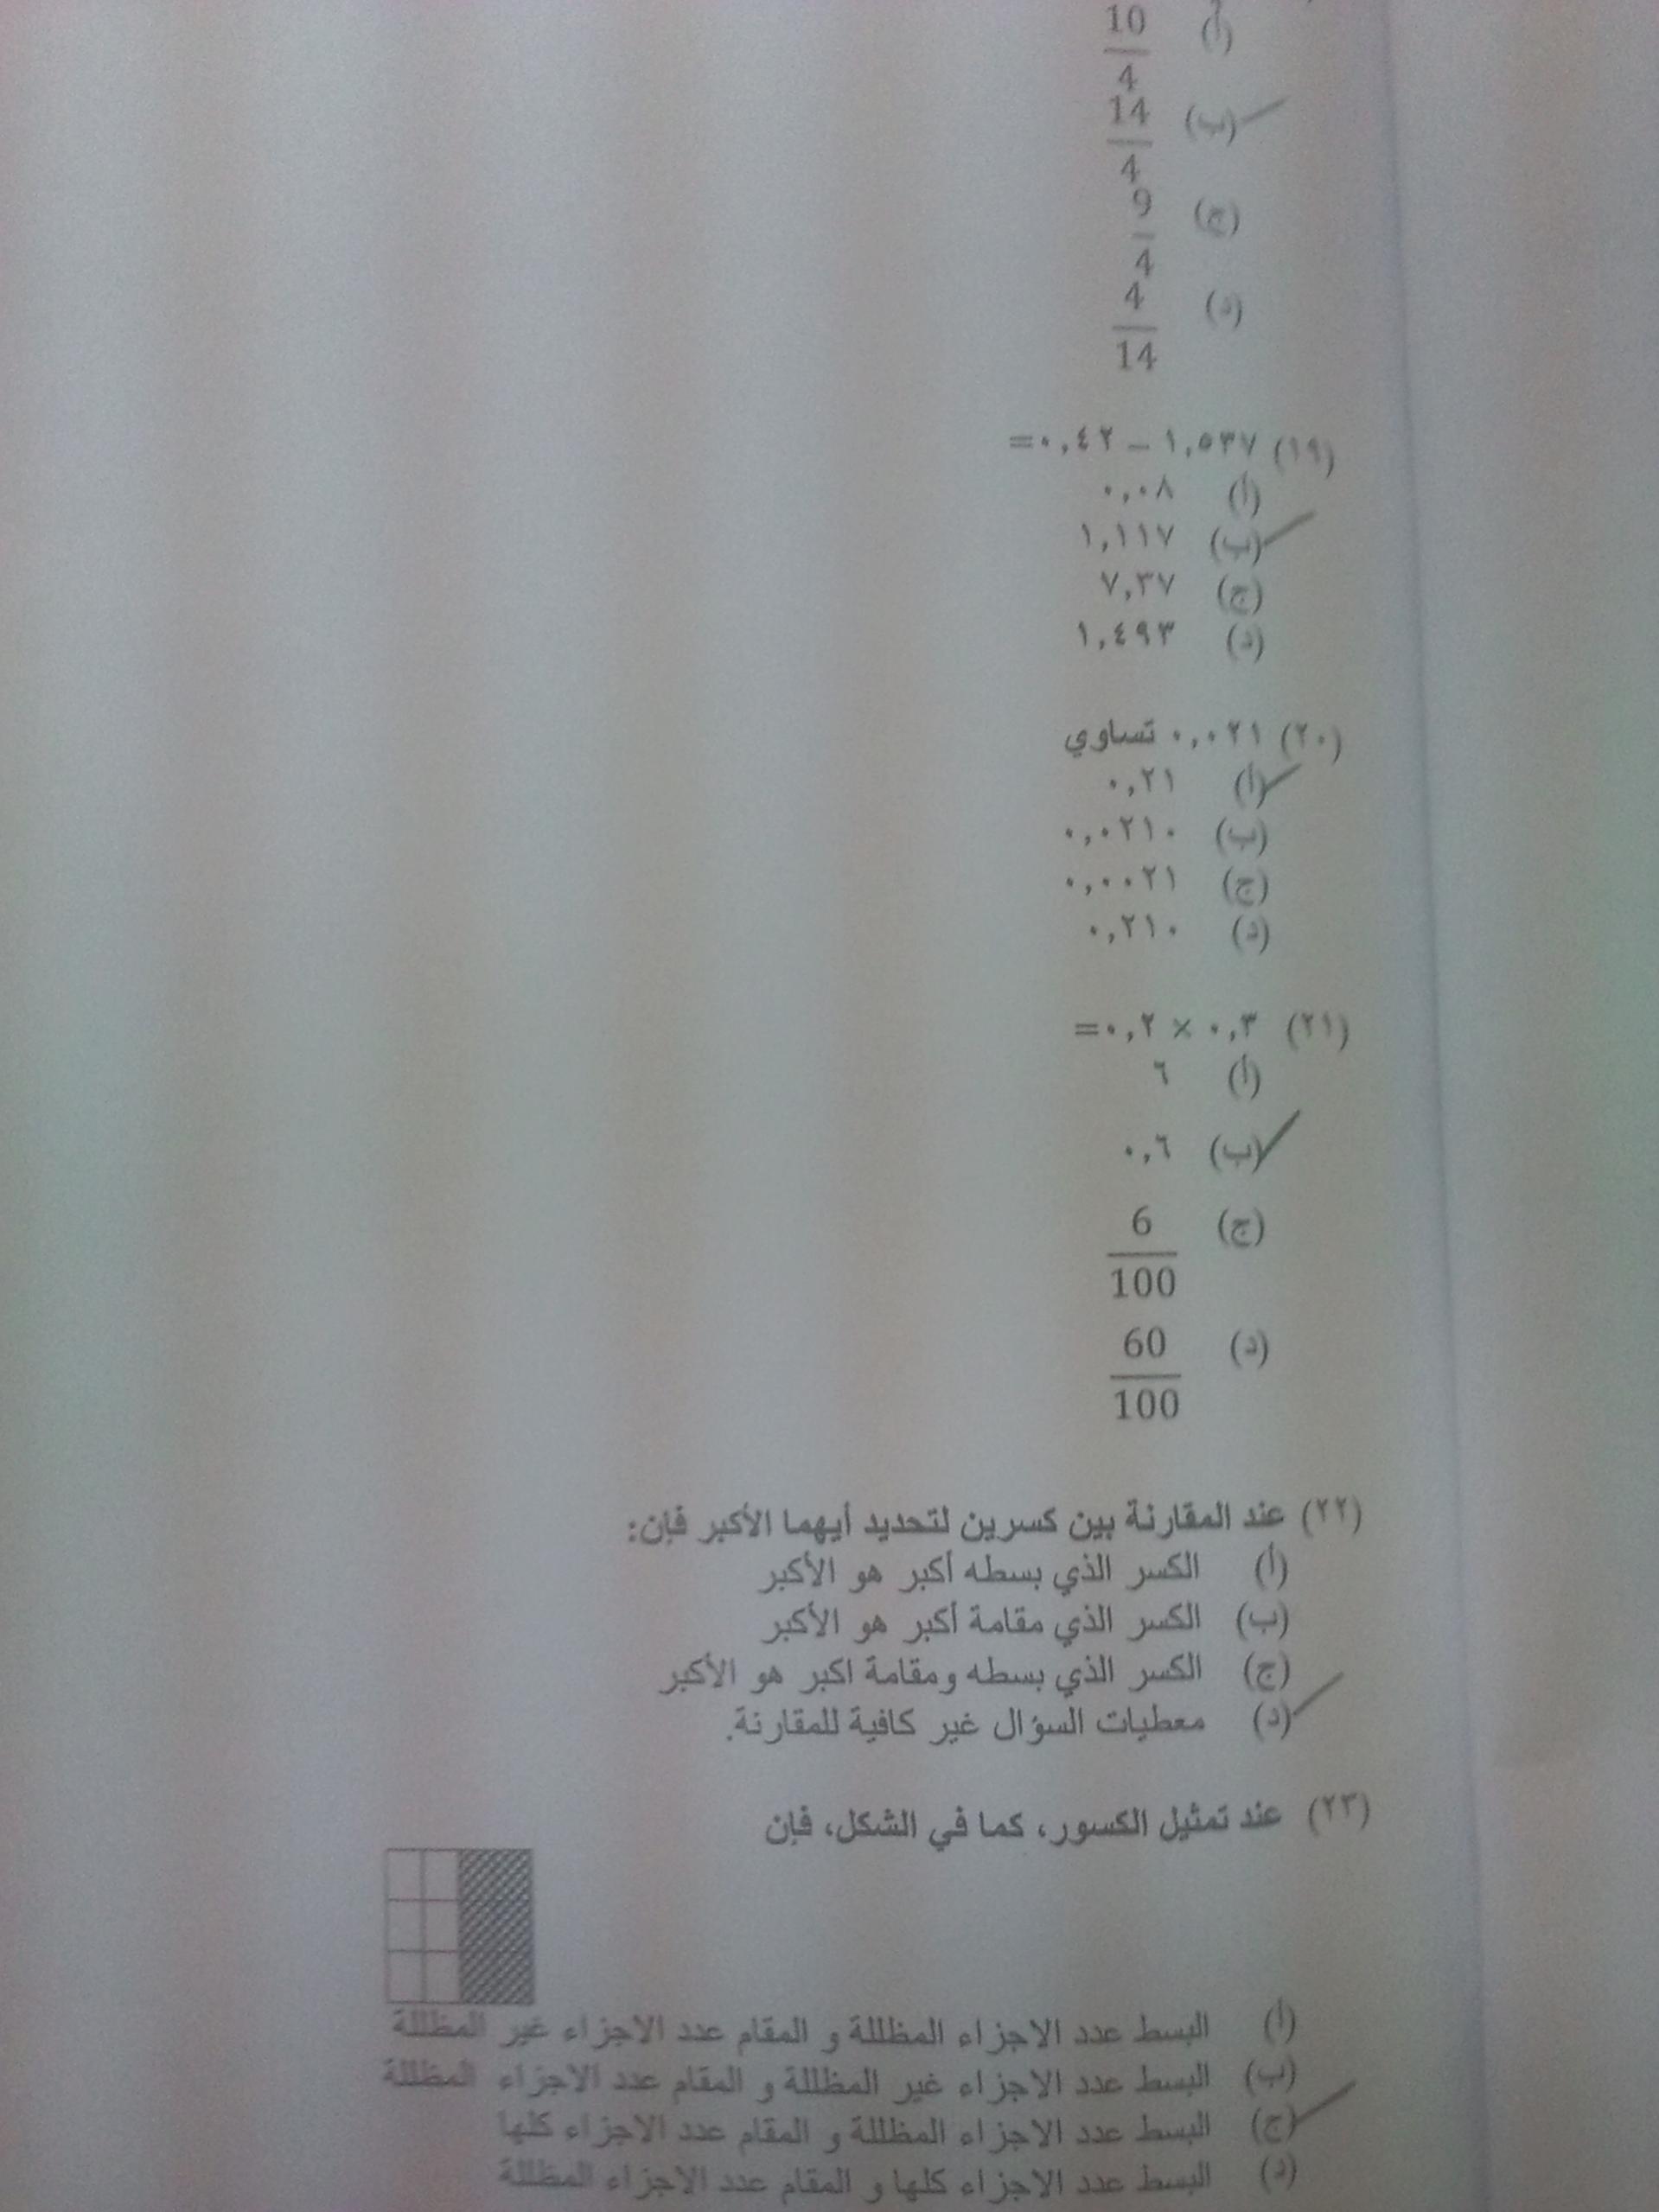 (أ) 10/4
(ب) 14/4
(ج) 9/4
(د) 4/14
(١٩) ١,٥٣٧ – ٠,٤٢ =
(أ) ٠,٠٨
(ب) ١,١١٧
(ج) ٧,٣٧
(د) ١,٤٩٣
(٢٠) ٠,٠٢١ تساوي
(أ) ٠,٢١
(ب) ٠,٠٢١٠
(ج) ٠,٠٠٢١
(د) ٠,٢١٠
(٢١) ٠,٣ × ٠,٢ =
(أ) ٦
(ب) ٠,٦
(ج) 6/100
(د) 60/100
(٢٢) عند المقارنة بين كسرين لتحديد أيهما الأكبر فإن:
(أ) الكسر الذي بسطه أكبر هو الأكبر
(ب) الكسر الذي مقامة أكبر هو الأكبر
(ج) الكسر الذي بسطه ومقامة اكبر هو الأكبر
(د) معطيات السؤال غير كافية للمقارنة.
(٢٣) عند تمثيل الكسور، كما في الشكل، فإن
(أ) البسط عدد الاجزاء المظللة و المقام عدد الاجزاء غير المظللة
(ب) البسط عدد الاجزاء غير المظللة و المقام عدد الاجزاء المظللة
(ج) البسط عدد الاجزاء المظللة و المقام عدد الاجزاء كلها
(د) البسط عدد الاجزاء كلها و المقام عدد الاجزاء المظللة